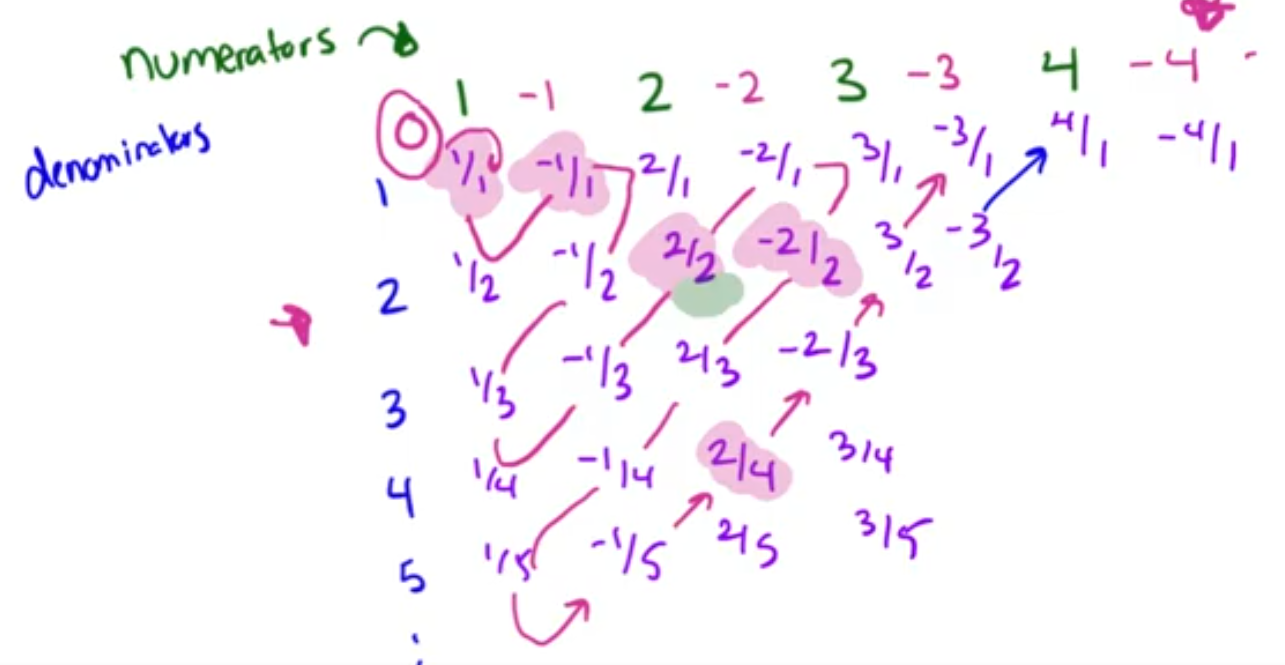 numerators
1 -1 2 -2 3 -3 4 -4
denominators
0
1 1/1 -1/1 2/1 -2/1 3/1 -3/1 4/1 -4/1
2 1/2 -1/2 2/2 -2/2 3/2 -3/2
3 1/3 -1/3 2/3 -2/3
4 1/4 -1/4 2/4 3/4
5 1/5 -1/5 2/5 3/5